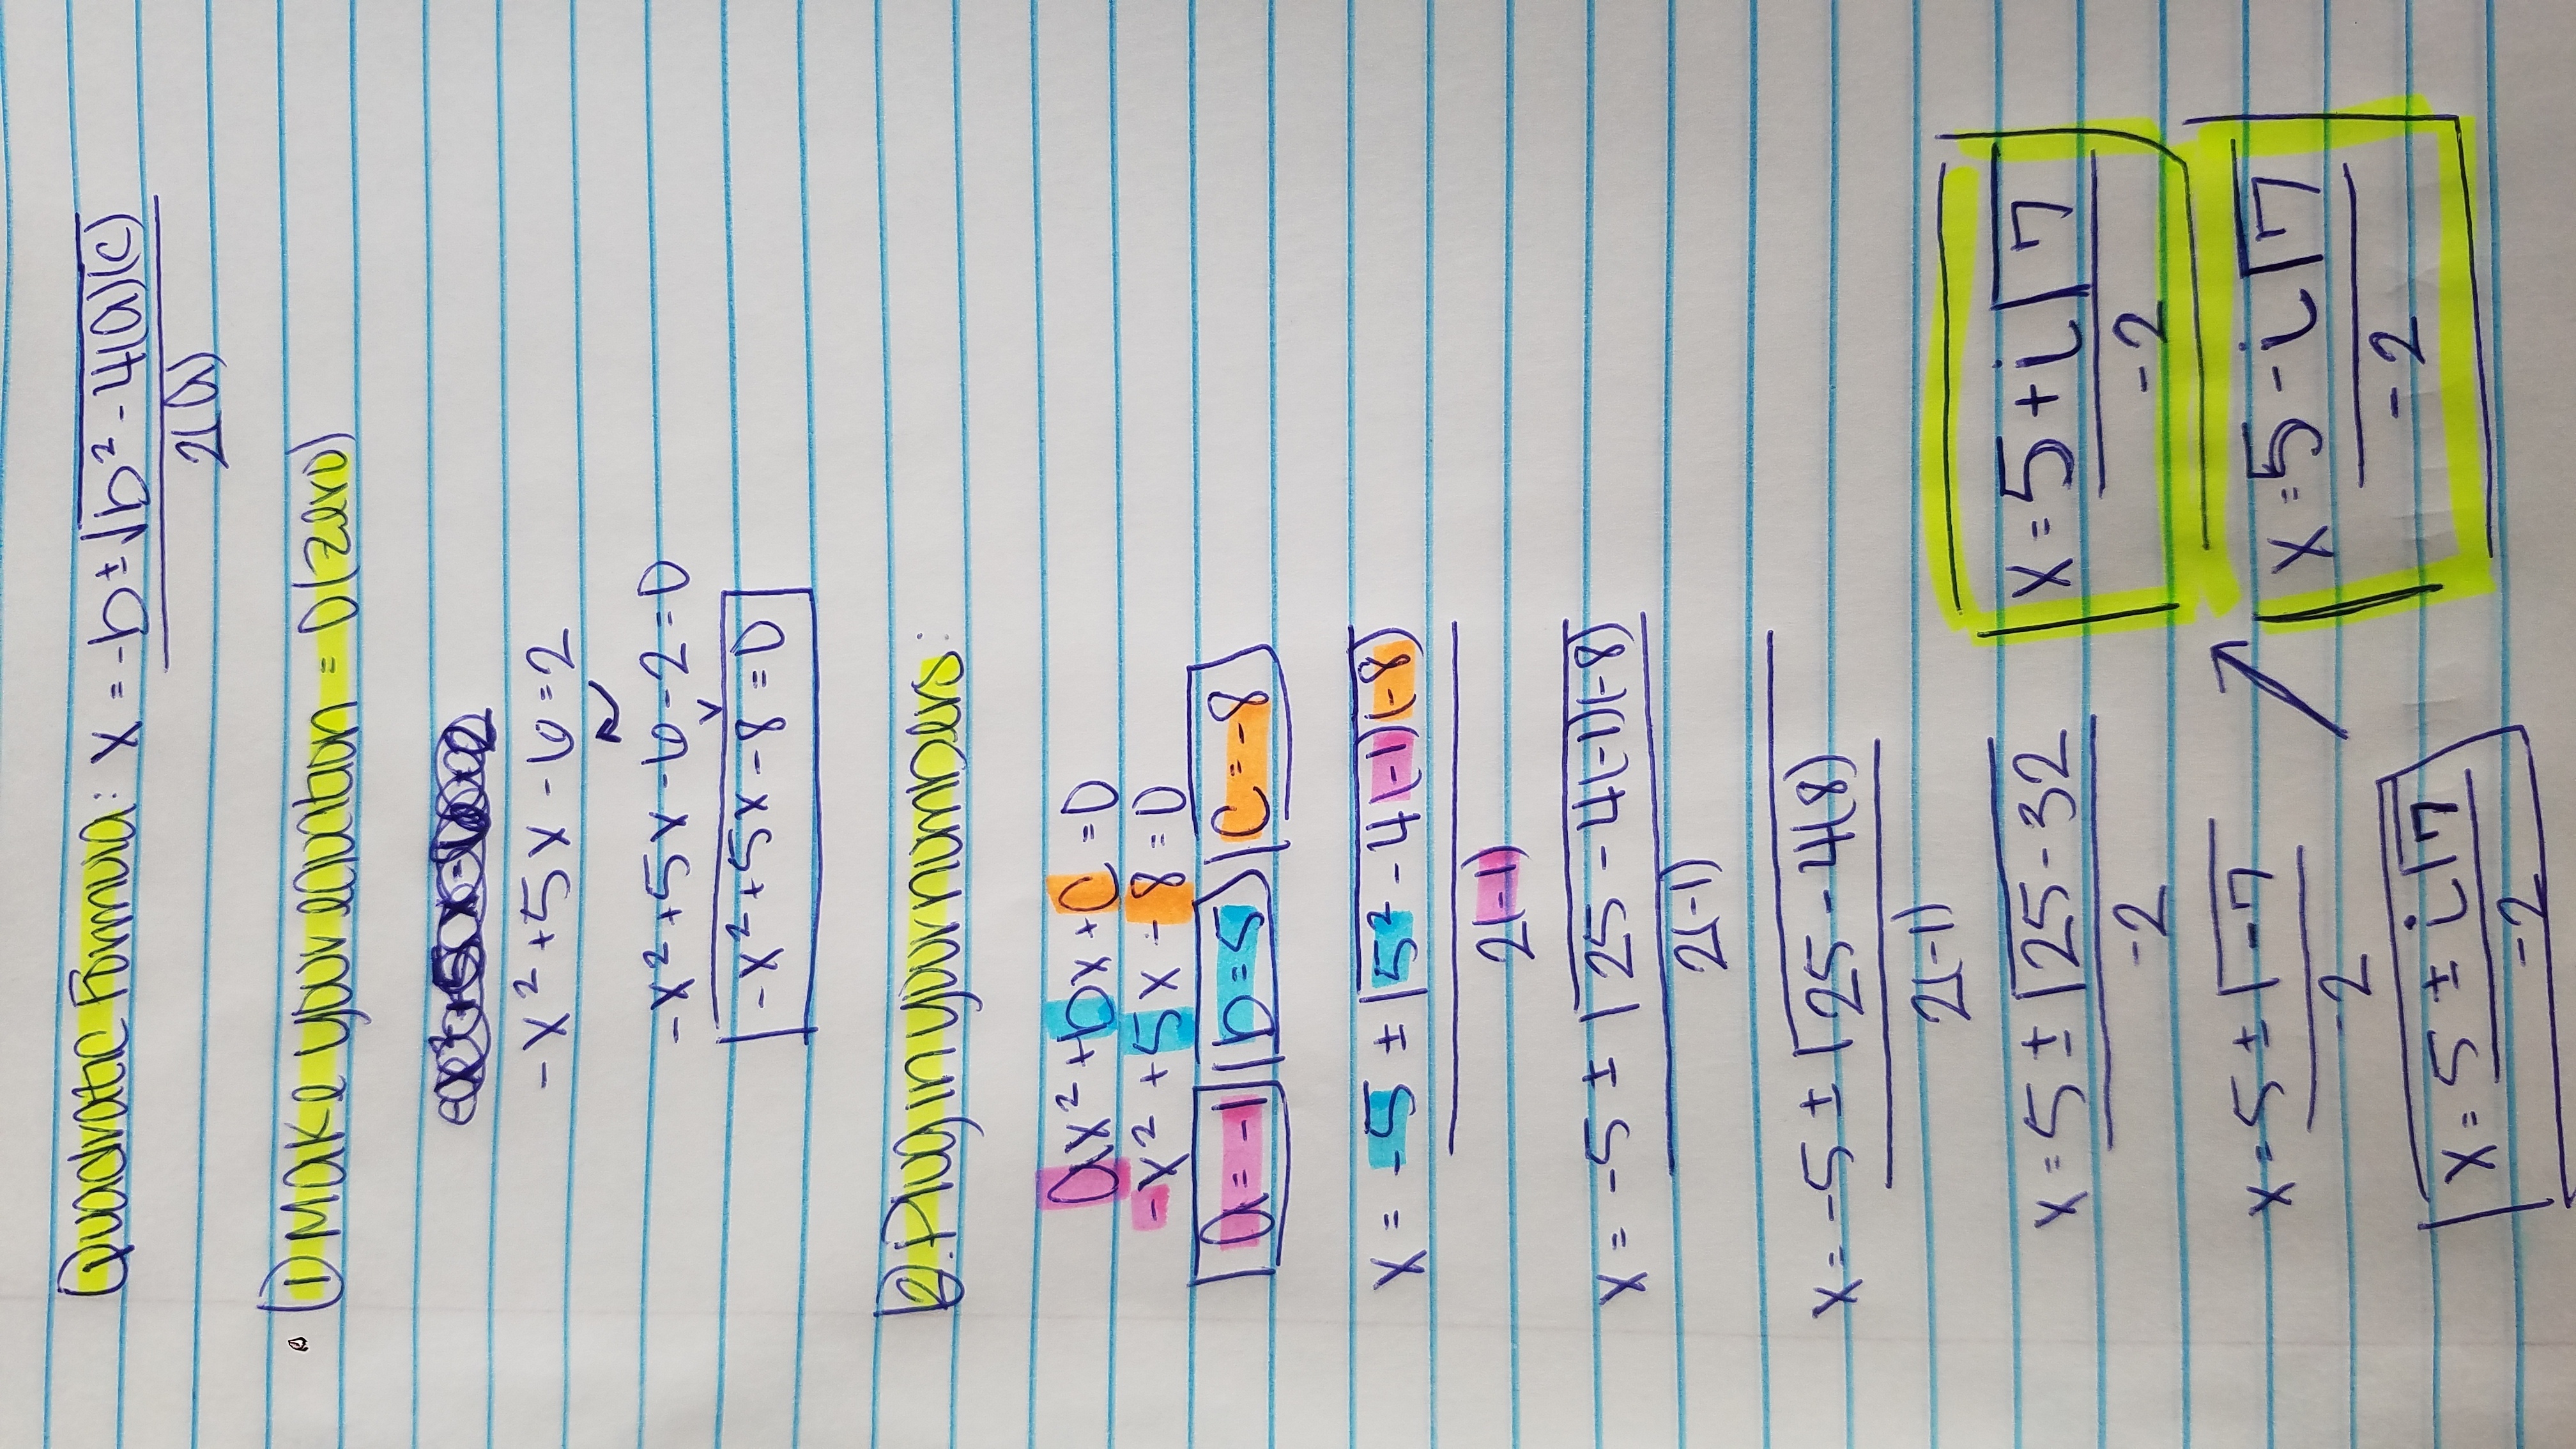 Quadratic Formula: x = -b ± √b² - 4(a)(c)
2(a)
1) Make your equation = 0 (zero)
-x² + 5x - 6 = 2
-x² + 5x - 6 - 2 = 0
-x² + 5x - 8 = 0
2. Plug in your numbers:
ax² + bx + c = 0
-x² + 5x - 8 = 0
a = -1 b = 5 c = -8
x = -5 ± √5² - 4(-1)(-8)
2(-1)
x = -5 ± √25 - 4(-1)(-8)
2(-1)
x = -5 ± √25 - 4(8)
2(-1)
x = 5 ± √25 - 32
-2
x = 5 ± √-7
-2
x = 5 ± i√7
-2
x = 5 + i√7
-2
x = 5 - i√7
-2